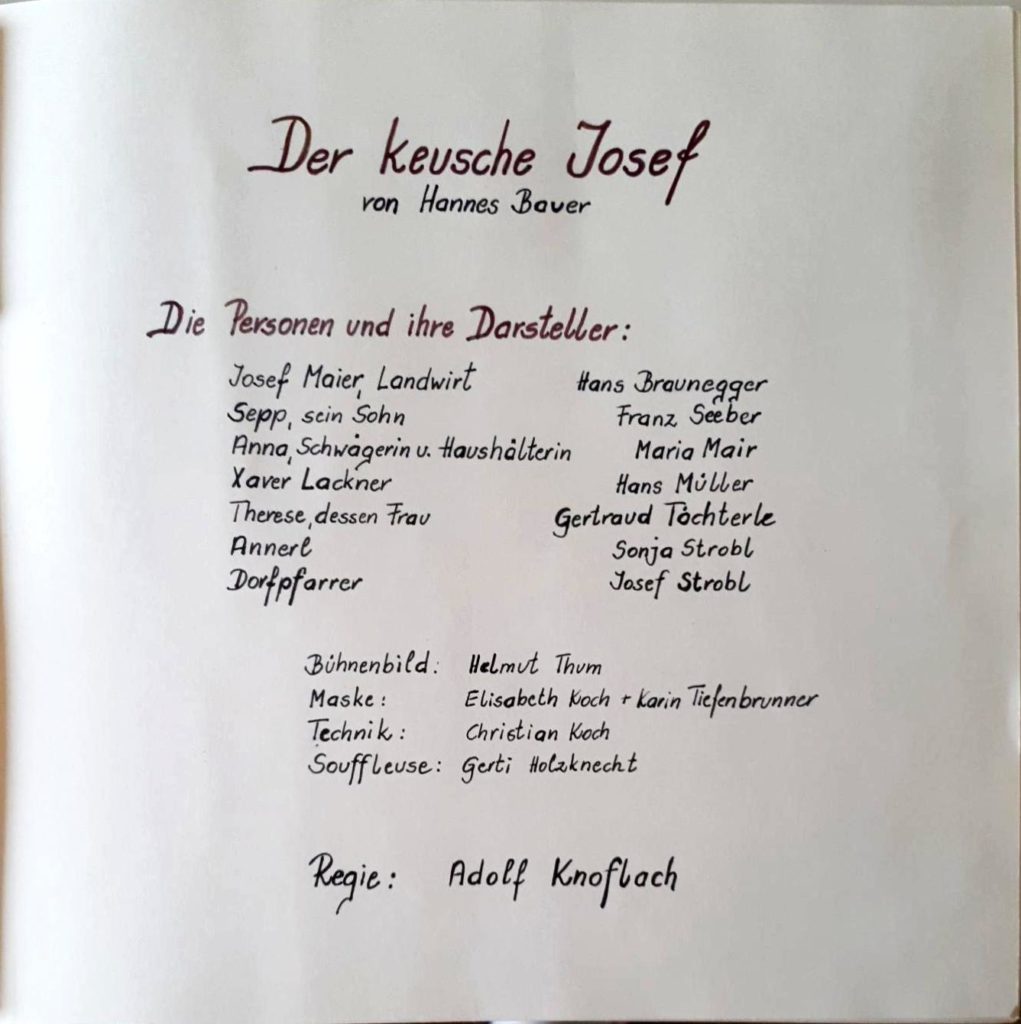 Der keusche Josef
von Hannes Bauer
Die Personen und ihre Darsteller:
Josef Maier, Landwirt Hans Braunegger
Sepp, sein Sohn Franz Seeber
Anna, Schwägerin u. Haushälterin Maria Mair
Xaver Lackner Hans Müller
Therese, dessen Frau Gertraud Töchterle
Annerl Sonja Strobl
Dorfpfarrer Josef Strobl
Bühnenbild: Helmut Thum
Maske: Elisabeth Koch + Karin Tiefenbrunner
Technik: Christian Koch
Souffleuse: Gerti Holzknecht
Regie: Adolf Knoflach